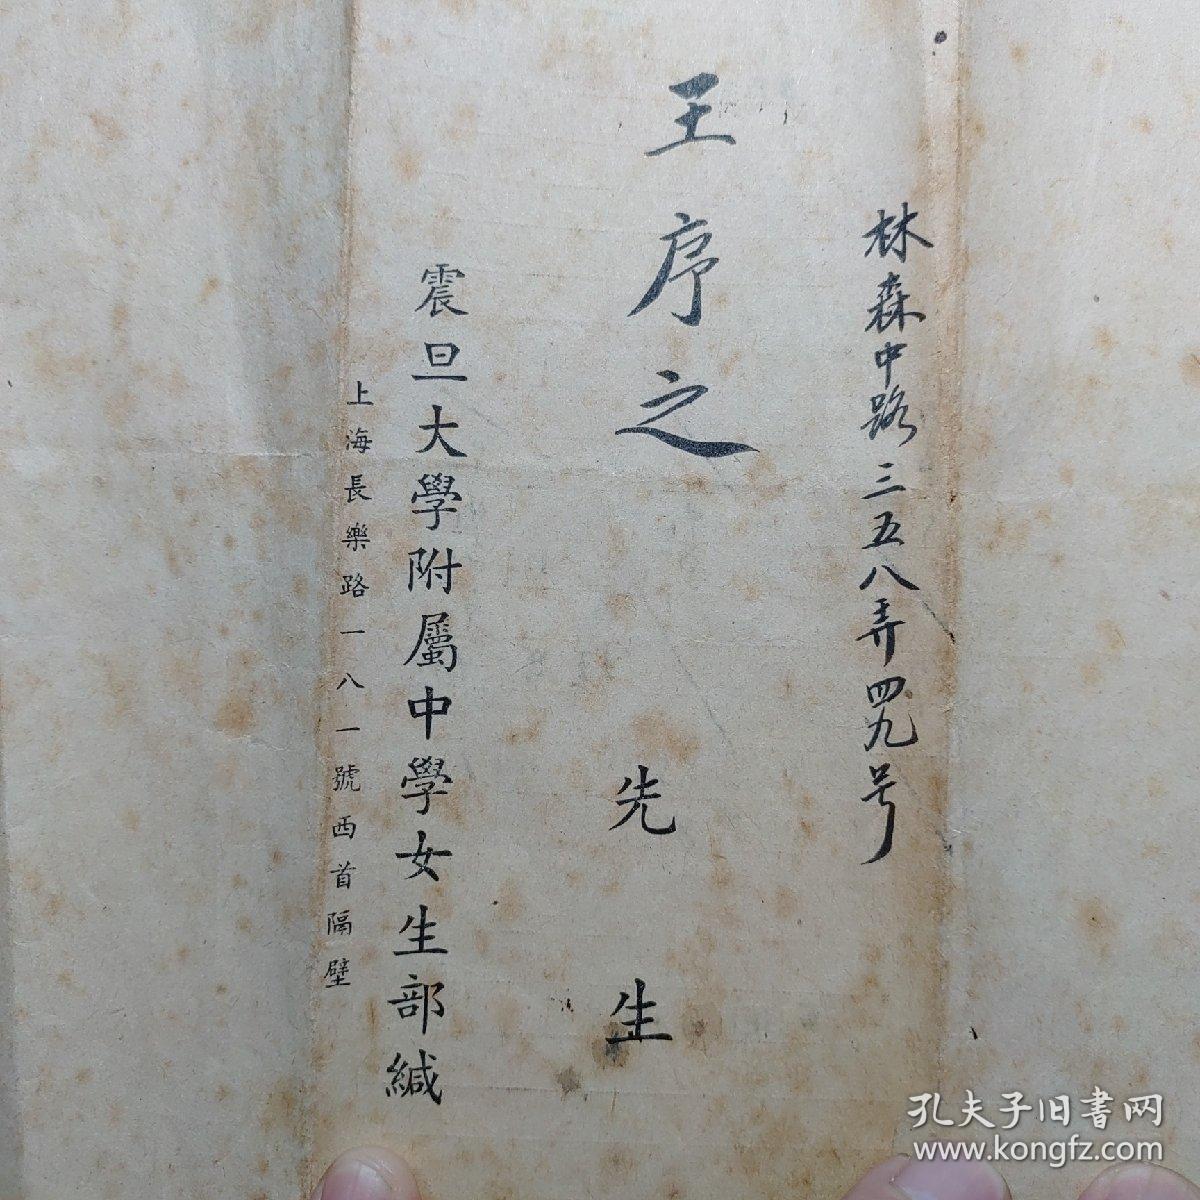 林森中路三五八弄四九号
王序之先生
震旦大學附屬中學女生部緘
上海長樂路一八一號西首隔壁
孔夫子旧書网
www.kongfz.com